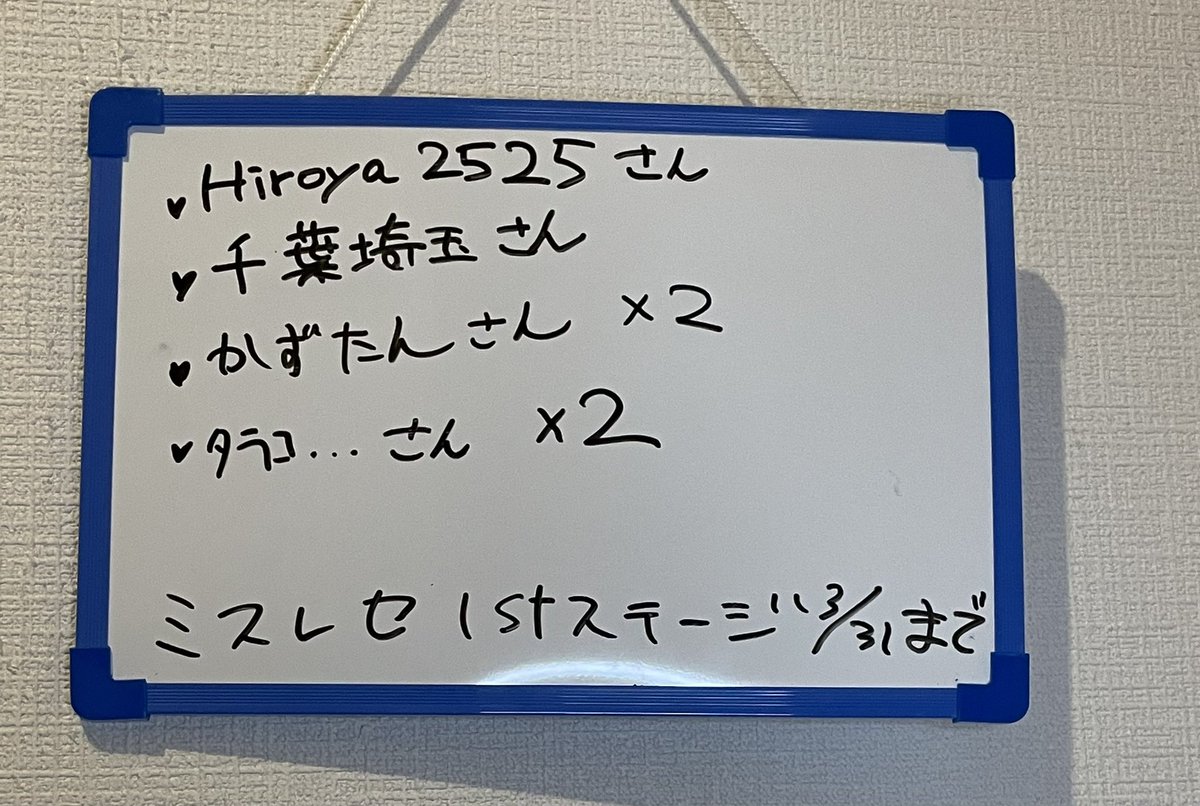 ♥Hiroya 2525 さん
♥千葉埼玉さん
♥かずたんさん ×2
♥タラコ... さん ×2
ミスレセ 1stステージ 3/31まで